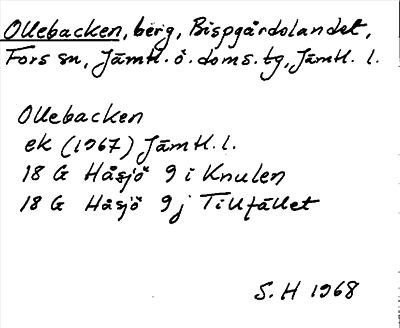 Ollebacken, berg, Bispgårdolandet,
Fors sn, Jämtl. ö. doms. tg, Jämtl. l.
Ollebacken
ek (1967) Jämtl. l.
18 G Håsjö 9 i Knulen
18 G Håsjö 9 j Tillfället
S. H 1968